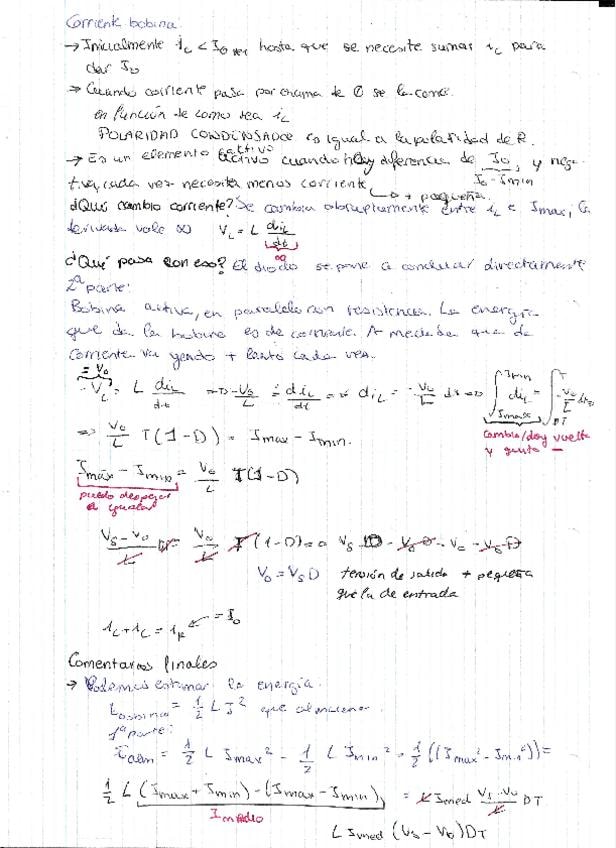 Corriente bobina
→ Inicialmente iL < I0 hasta que se necesite sumar ic para
dar I0
→ Cuando corriente pasa por encima de 0 se la come
en función de como sea iL
POLARIDAD CONDENSADOR es igual a la polaridad de R.
→ Es un elemento activo cuando hay diferencia de I0, y nega
I0 - Imin
tiva, cada vez necesita menos corriente → + pequeña.
¿Qué cambio corriente? Se cambia abruptamente entre iL e Imax, la
derivada vale ∞ VL = L diL/dt
∞
¿Qué pasa con eso? El diodo se pone a conducir directamente
2ª parte:
Bobina activa, en paralelo con resistencia. La energía
que da la bobina es de corriente. A medida que da
corriente va yendo + lento cada vez.
= V0
-VL = L diL/dt => -V0/L = diL/dt => diL = -V0/L dt => ∫Imax^Imin diL = ∫DT^T -V0/L dt
=> V0/L T(1-D) = Imax - Imin.
cambio/doy vuelta
y quito -
Imax - Imin = V0/L T(1-D)
puedo despejar
e igualar
(VS - V0)/L DT = V0/L T(1-D) => VS D - V0 D = V0 - V0 D
V0 = VS D tensión de salida + pequeña
que la de entrada
iL + ic = iR ← = I0
Comentarios finales
→ Podemos estimar la energía.
Ebobina = 1/2 L I² que almacena
1ª parte:
Ealm = 1/2 L Imax² - 1/2 L Imin² = 1/2 ((Imax² - Imin²) =
1/2 L (Imax + Imin) - (Imax - Imin) = L Imed (VS - V0)/L DT
Imedio
L Imed (VS - V0) DT